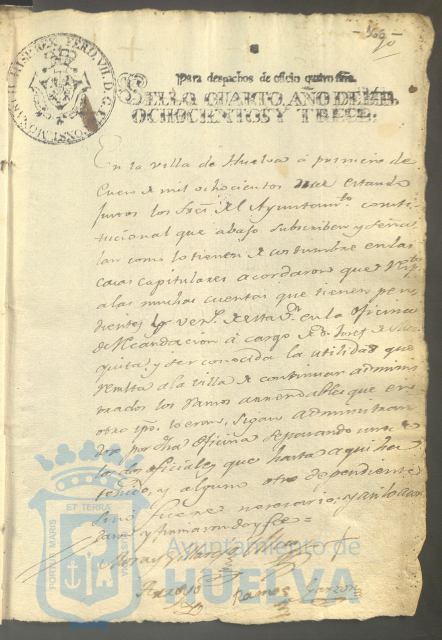 - 360 -
FERD. VII. D. G. ET CONST. MONARCHIAE HISP. REX
Para despachos de oficio quatro mrs.
SELLO QUARTO, AÑO DE MIL
OCHOCIENTOS Y TRECE.
En la villa de Huelva á primero de
Enero de mil ochocientos estando
juntos los Sres. del Ayuntam.to consti-
tucional que abajo subscriben y seña-
lan como lo tienen de costumbre en las
casas capitulares acordaron que
a las muchas cuentas que tienen pen-
dientes en la Oficina
de Recaudacion á cargo de Dn. Josef de
y der conocida la utilidad que
resulta a la villa de continuar adminis-
trados los Ramos arrendables que en
otro tpo. lo eran, sigan administran-
dose por dha Oficina separando uno de
los dos oficiales que hasta aqui ha
tenido, y algun otro dependiente
sino fuere necesario, y asi lo acor-
daron y firmaron doy fee =
Ramos Garzon
PORTUS MARIS ET TERRAE
Ayuntamiento de
HUELVA